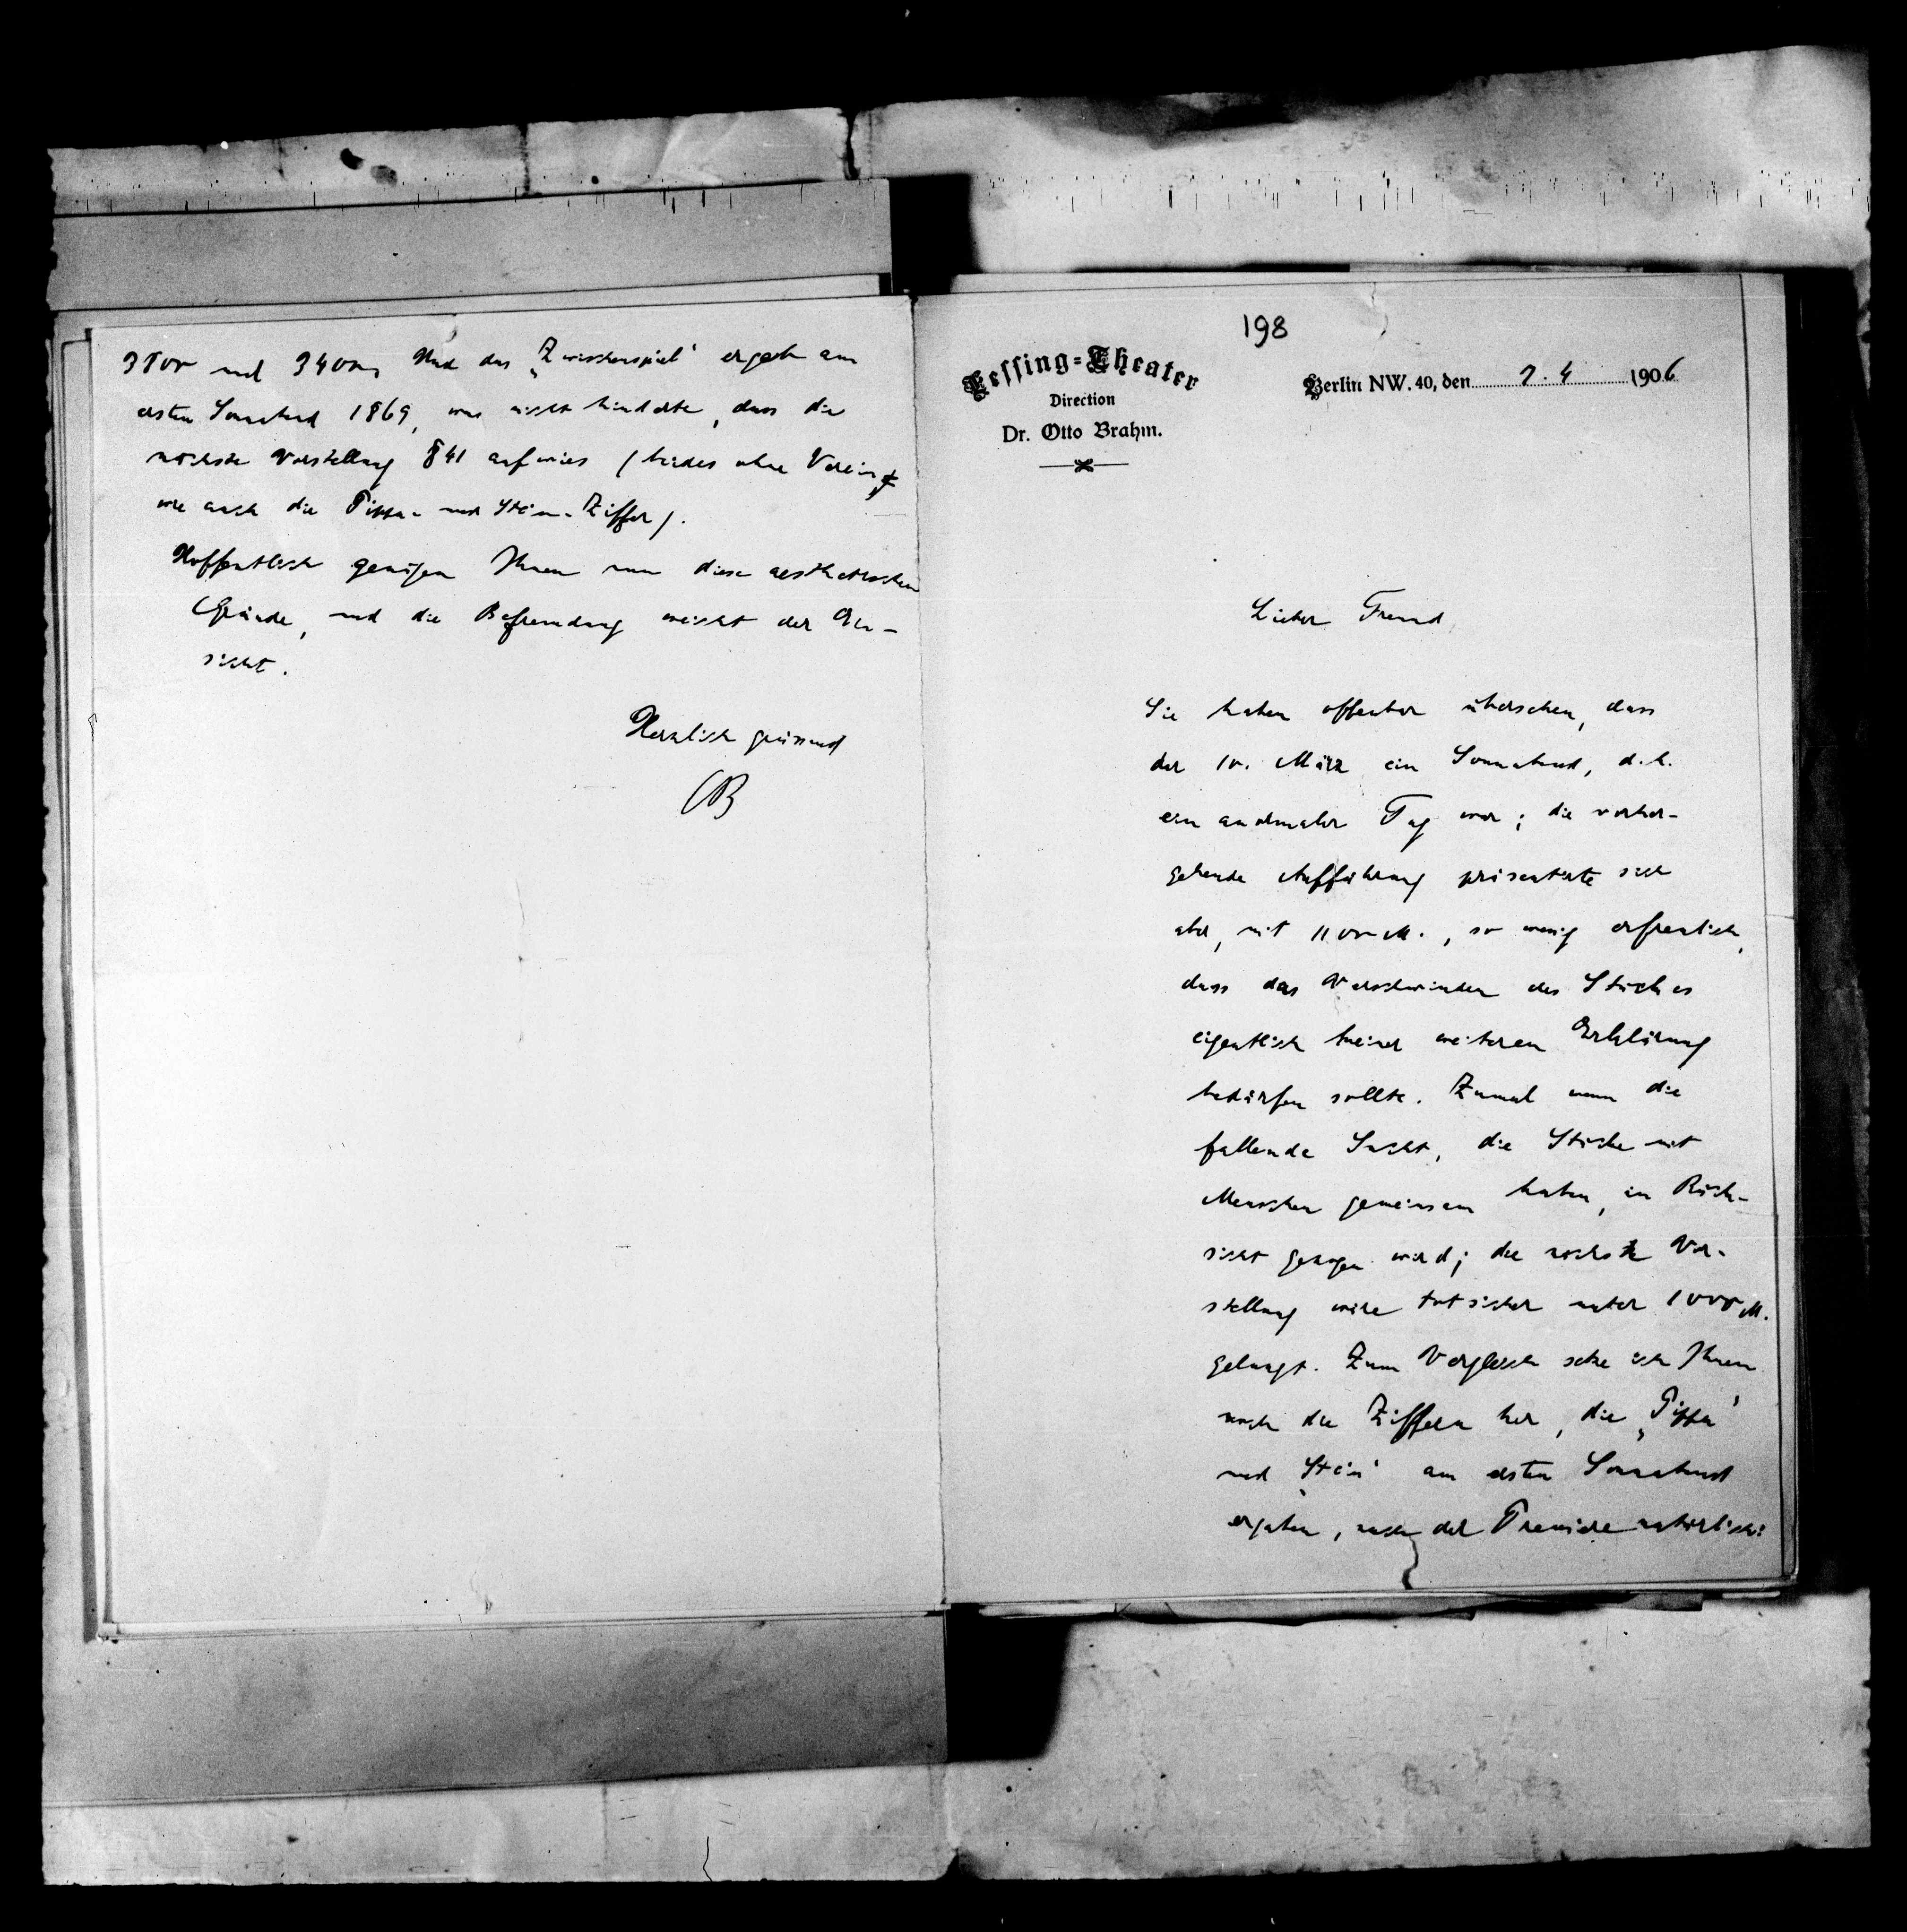 198
Lessing=Theater
Direction
Dr. Otto Brahm.
Berlin NW. 40, den 7. 4 1906
Lieber Freund
Sie haben offenbar übersehen, dass
der 10. März ein Sonnabend, d. h.
ein anormaler Tag war; die vorher-
gehende Aufführung präsentirte sich
aber, mit 1100 M., so wenig erfreulich,
dass das Verschwinden des Stückes
eigentlich keiner weiteren Erklärung
bedürfen sollte. Zumal wenn die
fallende Sucht, die Stücke mit
Menschen gemeinsam haben, in Rück-
sicht gezogen wird; die nächste Vor-
stellung wäre totsicher unter 1000 M.
gelangt. Zum Vergleich setze ich Ihnen
noch die Ziffern her, die „Pippa“
und „Stein“ am ersten Sonnabend
ergaben, nach der Premiere natürlich:
3500 und 3400. Und das „Zwischenspiel“ ergab am
ersten Sonnabend 1869, was nicht hinderte, dass die
nächste Vorstellung 841 aufwies (beides ohne Verein,
wie auch die Pippa- und Stein-Ziffer).
Hoffentlich genügen Ihnen nun diese aesthetischen
Gründe, und die Befremdung weicht der Ein-
sicht.
Herzlich grüssend
OB